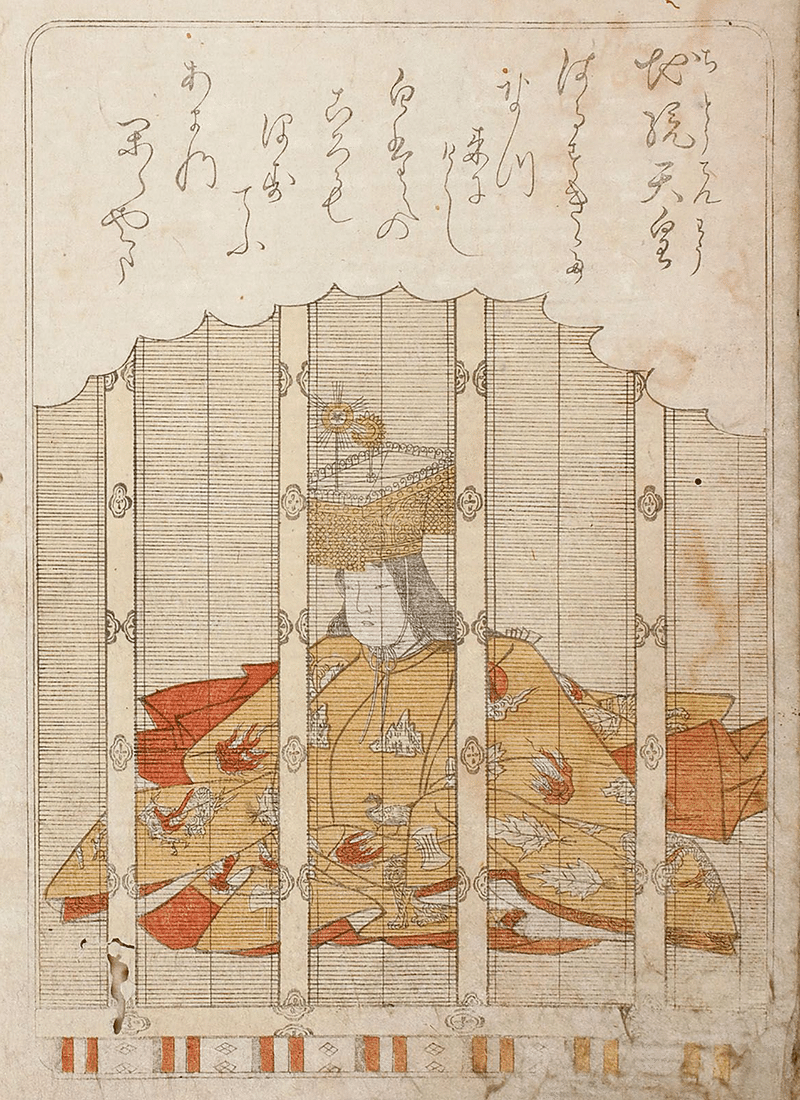 持統天皇
ぢとうてんわう
はるすきて
なつ
来に
けらし
白たへの
ころも
ほす
てふ
あまの
かくやま